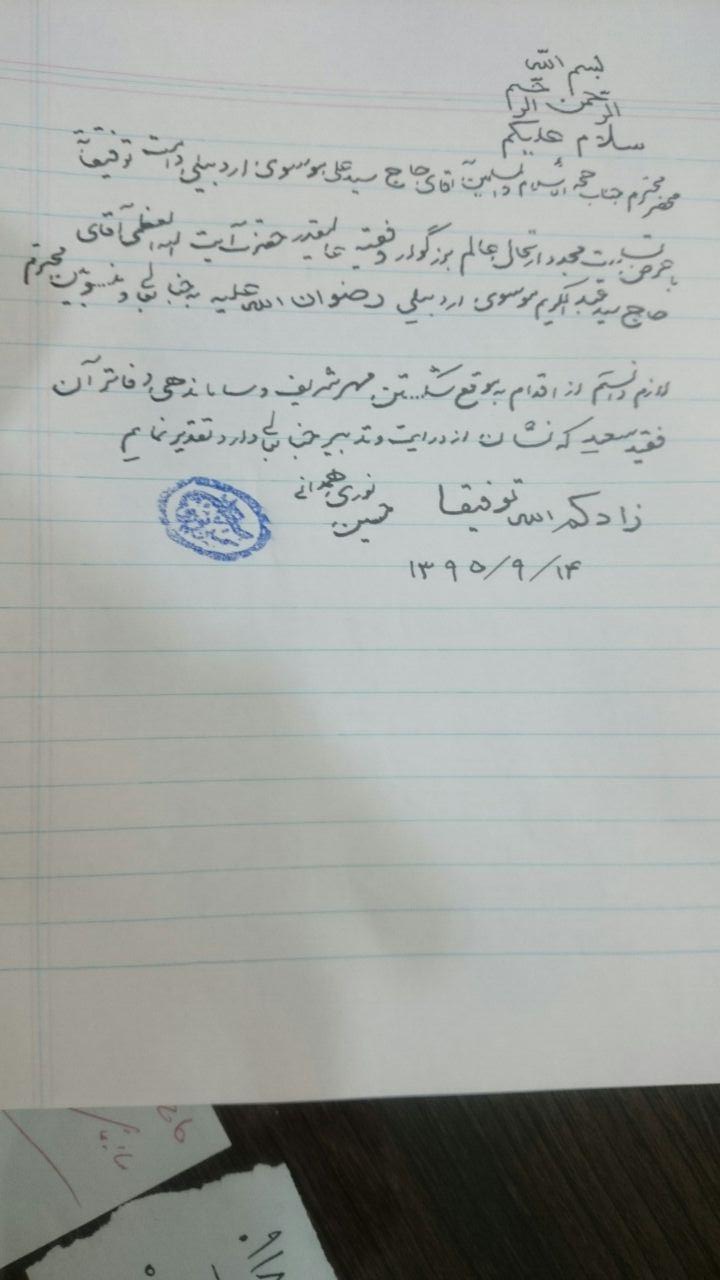 بسم الله
الرحمن الرحیم
سلام علیکم
محضر محترم جناب حجة الاسلام والمسلمین آقای حاج سید علی موسوی اردبیلی دامت توفیقاته
با عرض تسلیت مجدد ارتحال عالم بزرگوار و فقیه عالیقدر حضرت آیت الله العظمی آقای
حاج سید عبدالکریم موسوی اردبیلی رضوان الله علیه به جنابعالی و منسوبین محترم
لازم دانستم از اقدام به موقع شکستن مهر شریف و ساماندهی دفاتر آن
فقید سعید که نشان از درایت و تدبیر جنابعالی دارد تقدیر نمایم
زادکم الله توفیقا
حسین نوری همدانی
۱۳۹۵/۹/۱۴
۰۹۱۸